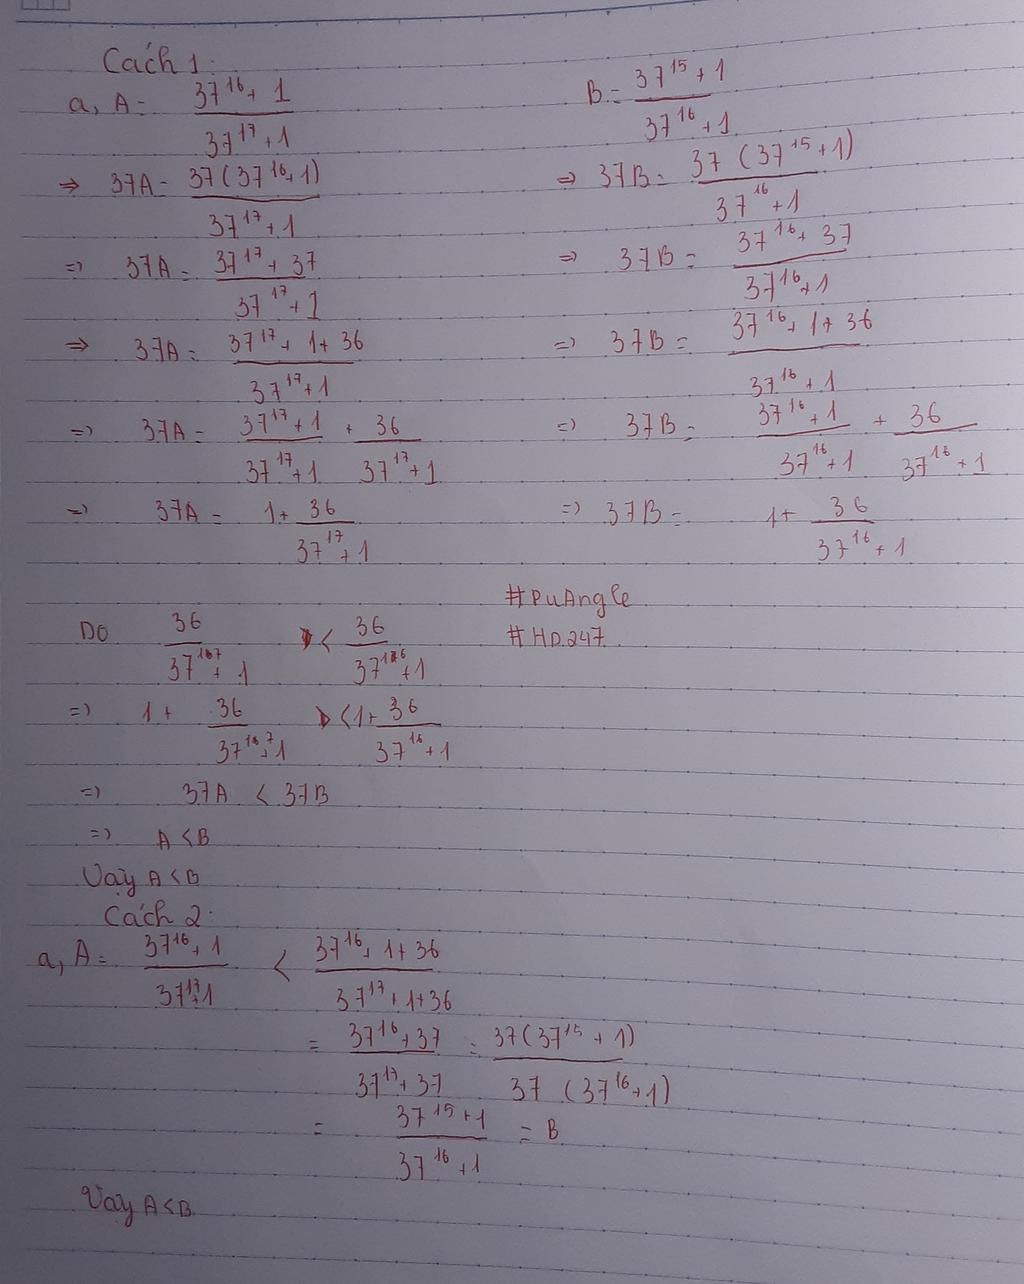 Cách 1:
a, A = \frac{37^{16} + 1}{37^{17} + 1}
B = \frac{37^{15} + 1}{37^{16} + 1}
=> 37A = \frac{37(37^{16} + 1)}{37^{17} + 1}
=> 37B = \frac{37(37^{15} + 1)}{37^{16} + 1}
=> 37A = \frac{37^{17} + 37}{37^{17} + 1}
=> 37B = \frac{37^{16} + 37}{37^{16} + 1}
=> 37A = \frac{37^{17} + 1 + 36}{37^{17} + 1}
=> 37B = \frac{37^{16} + 1 + 36}{37^{16} + 1}
=> 37A = \frac{37^{17} + 1}{37^{17} + 1} + \frac{36}{37^{17} + 1}
=> 37B = \frac{37^{16} + 1}{37^{16} + 1} + \frac{36}{37^{16} + 1}
=> 37A = 1 + \frac{36}{37^{17} + 1}
=> 37B = 1 + \frac{36}{37^{16} + 1}
#PuAngle
#HD247
Do \frac{36}{37^{17} + 1} < \frac{36}{37^{16} + 1}
=> 1 + \frac{36}{37^{17} + 1} < 1 + \frac{36}{37^{16} + 1}
=> 37A < 37B
=> A < B
Vậy A < B
Cách 2:
a, A = \frac{37^{16} + 1}{37^{17} + 1} < \frac{37^{16} + 1 + 36}{37^{17} + 1 + 36}
= \frac{37^{16} + 37}{37^{17} + 37} = \frac{37(37^{15} + 1)}{37(37^{16} + 1)}
= \frac{37^{15} + 1}{37^{16} + 1} = B
Vậy A < B